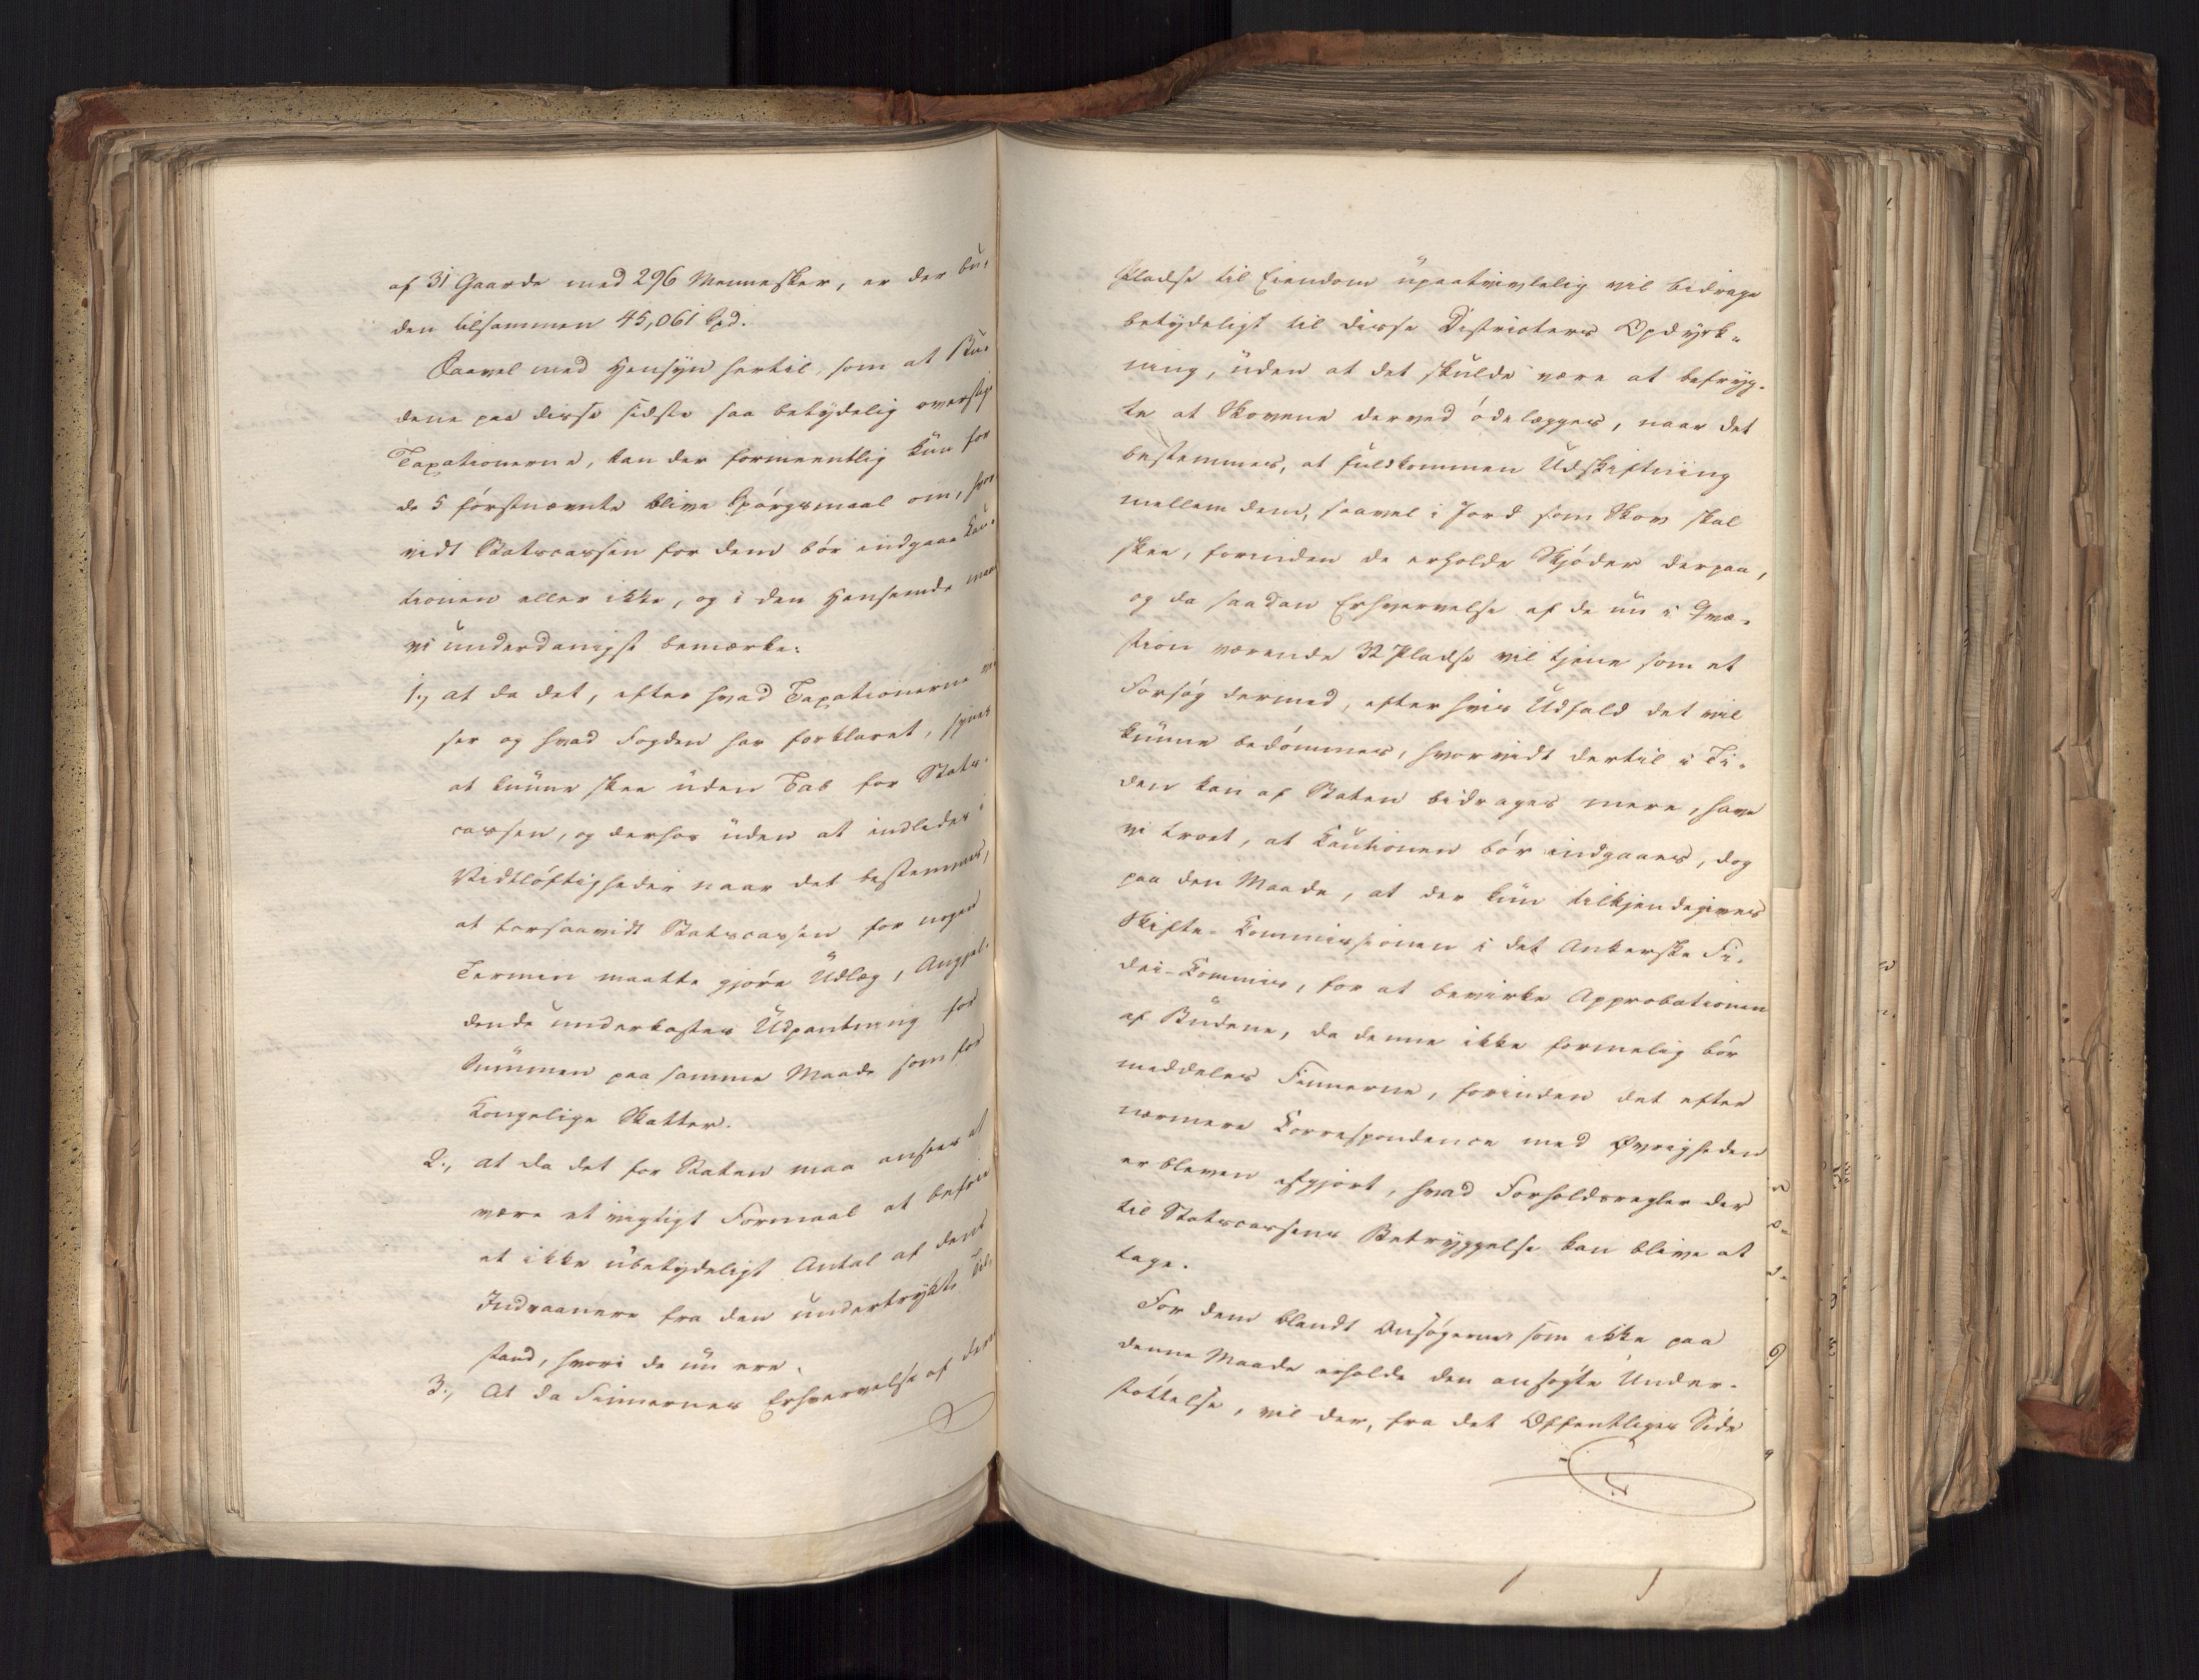 af 31 Gaarde med 296 Mennesker, er der bu-
den tilsammen 45,061 Spd.
Saavel med Hensyn hertil, som at Bu-
dene paa disse sidste saa betydelig overstige
Taxationerne, kan der formeentlig kun for
de 5 førstnævnte blive Spørgsmaal om, hvor-
vidt Statscassen for dem bør indgaae Cau-
tionen eller ikke, og i den Henseende maae
vi underdanigst bemærke:
1., at da det, efter hvad Taxationerne vi-
ser og hvad Fogden har forklaret, synes
at kunne skee uden Tab for Stats-
cassen, og derhos uden at indledes i
Vidtløftigheder naar det bestemmes,
at forsaavidt Statscassen for nogen
Termin maatte gjøre Udlæg, Angjæl-
dende underkastes Udpantning for
Summen paa samme Maade som for
Kongelige Skatter.
2., at da det for Staten maa ansees at
være et vigtigt Formaal at befrie
et ikke ubetydeligt Antal af dens
Indvaanere fra den undertrykte Til-
stand, hvori de nu ere.
3., At da Finnernes Erhvervelse af deres
Pladse til Eiendom upaatvivlelig vil bidrage
betydeligt til disse Districters Opdyrk-
ning, uden at det skulde være at befryg-
te at Skovene derved ødelægges, naar det
bestemmes, at fuldkommen Udskiftning
mellem dem, saavel i Jord som Skov skal
skee, forinden de erholde Skjøder derpaa,
og da saadan Erhvervelse af de nu i Qvæ-
stion værende 32 Pladse vil tjene som et
Forsøg dermed, efter hvis Udfald det vil
kunne bedømmes, hvorvidt dertil i Ti-
den kan af Staten bidrages mere, have
vi troet, at Cautionen bør indgaaes, dog
paa den Maade, at der kun tilkjendegives
Skifte-Commissionen i det Ankerske Fi-
dei-Commis, for at bevirke Approbationen
af Budene, da denne ikke formelig bør
meddeles Finnerne, forinden det efter
nærmere Correspondence med Øvrigheden
er bleven afgjort, hvad Forholdsregler der
til Statscassens Betryggelse kan blive at
tage.
For dem blandt Ansøgerne som ikke paa
denne Maade erholde den ansøgte Under-
støttelse, vil der, fra det Offentliges Side